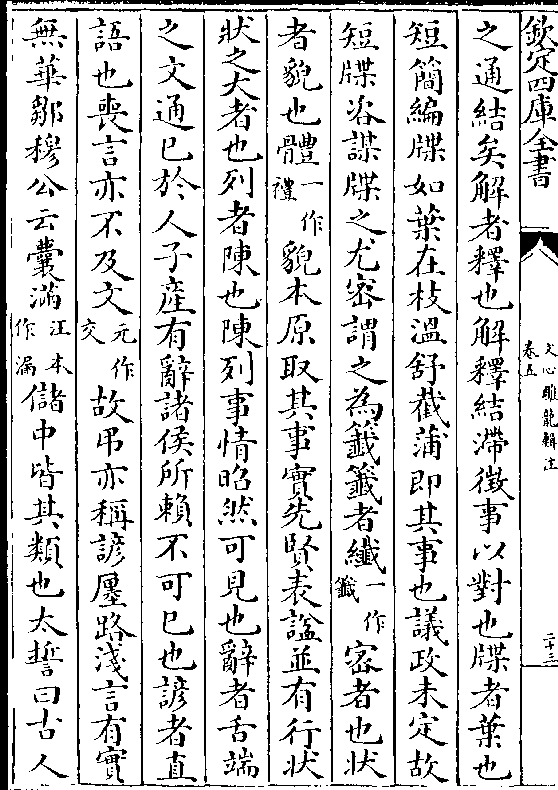 欽定四庫全書
文心雕龍輯注
卷五
二十三
之通結矣解者釋也解釋結滯徵事以對也牒者葉也
短簡編牒如葉在枝溫舒截蒲即其事也議政未定故
短牒咨謀牒之尤密謂之為籤籤者纖一作籤密者也狀
者貌也體一作禮貌本原取其事實先賢表諡並有行狀
狀之大者也列者陳也陳列事情昭然可見也辭者舌端
之文通已於人子產有辭諸侯所賴不可已也諺者直
語也喪言亦不及文元作交故弔亦稱諺廛路淺言有實
無華鄒穆公云囊滿汪本作漏儲中皆其類也太誓曰古人